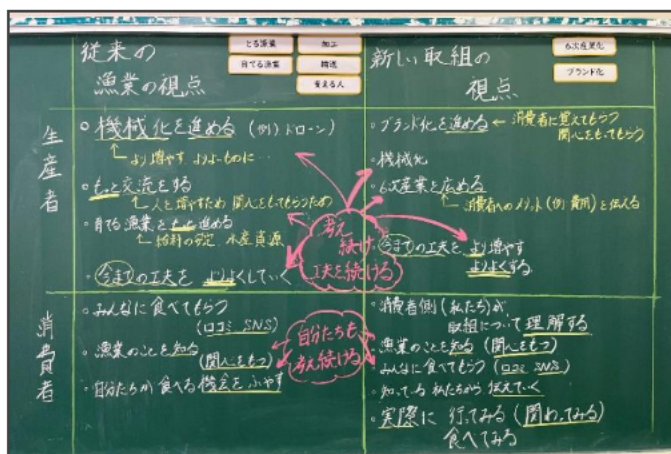 従来の
漁業の視点
とる漁業
加工
育てる漁業
輸送
支える人
新しい取組の
視点
6次産業化
ブランド化
生産者
○機械化を進める(例)ドローン)
より増やす よりよいものに…
・もっと交流をする
人を増やすため 関心をもってもらうため
・育てる漁業をもっと進める
給料の安定 水産資源
・今までの工夫をよりよくしていく
・ブランド化を進める ← 消費者に覚えてもらう
関心をもってもらう
・機械化
・6次産業を広める
消費者へのメリット(例 費用)を伝える
今までの工夫を、より増やす
よりよくする
考え
続け
工夫を続ける
消費者
・みんなに食べてもらう
(口コミ SNS)
・漁業のことを知る
(関心をもつ)
・自分たちが食べる機会をふやす
自分たちも
考え続ける
・消費者側(私たち)が
取組について理解する
・漁業のことを知る(関心をもつ)
・みんなに食べてもらう(口コミ SNS)
・知っている私たちから伝えていく
・実際に行ってみる(関わってみる)
食べてみる